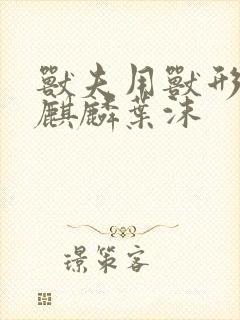 獸夫用獸形
麒麟葉沫
璟策客